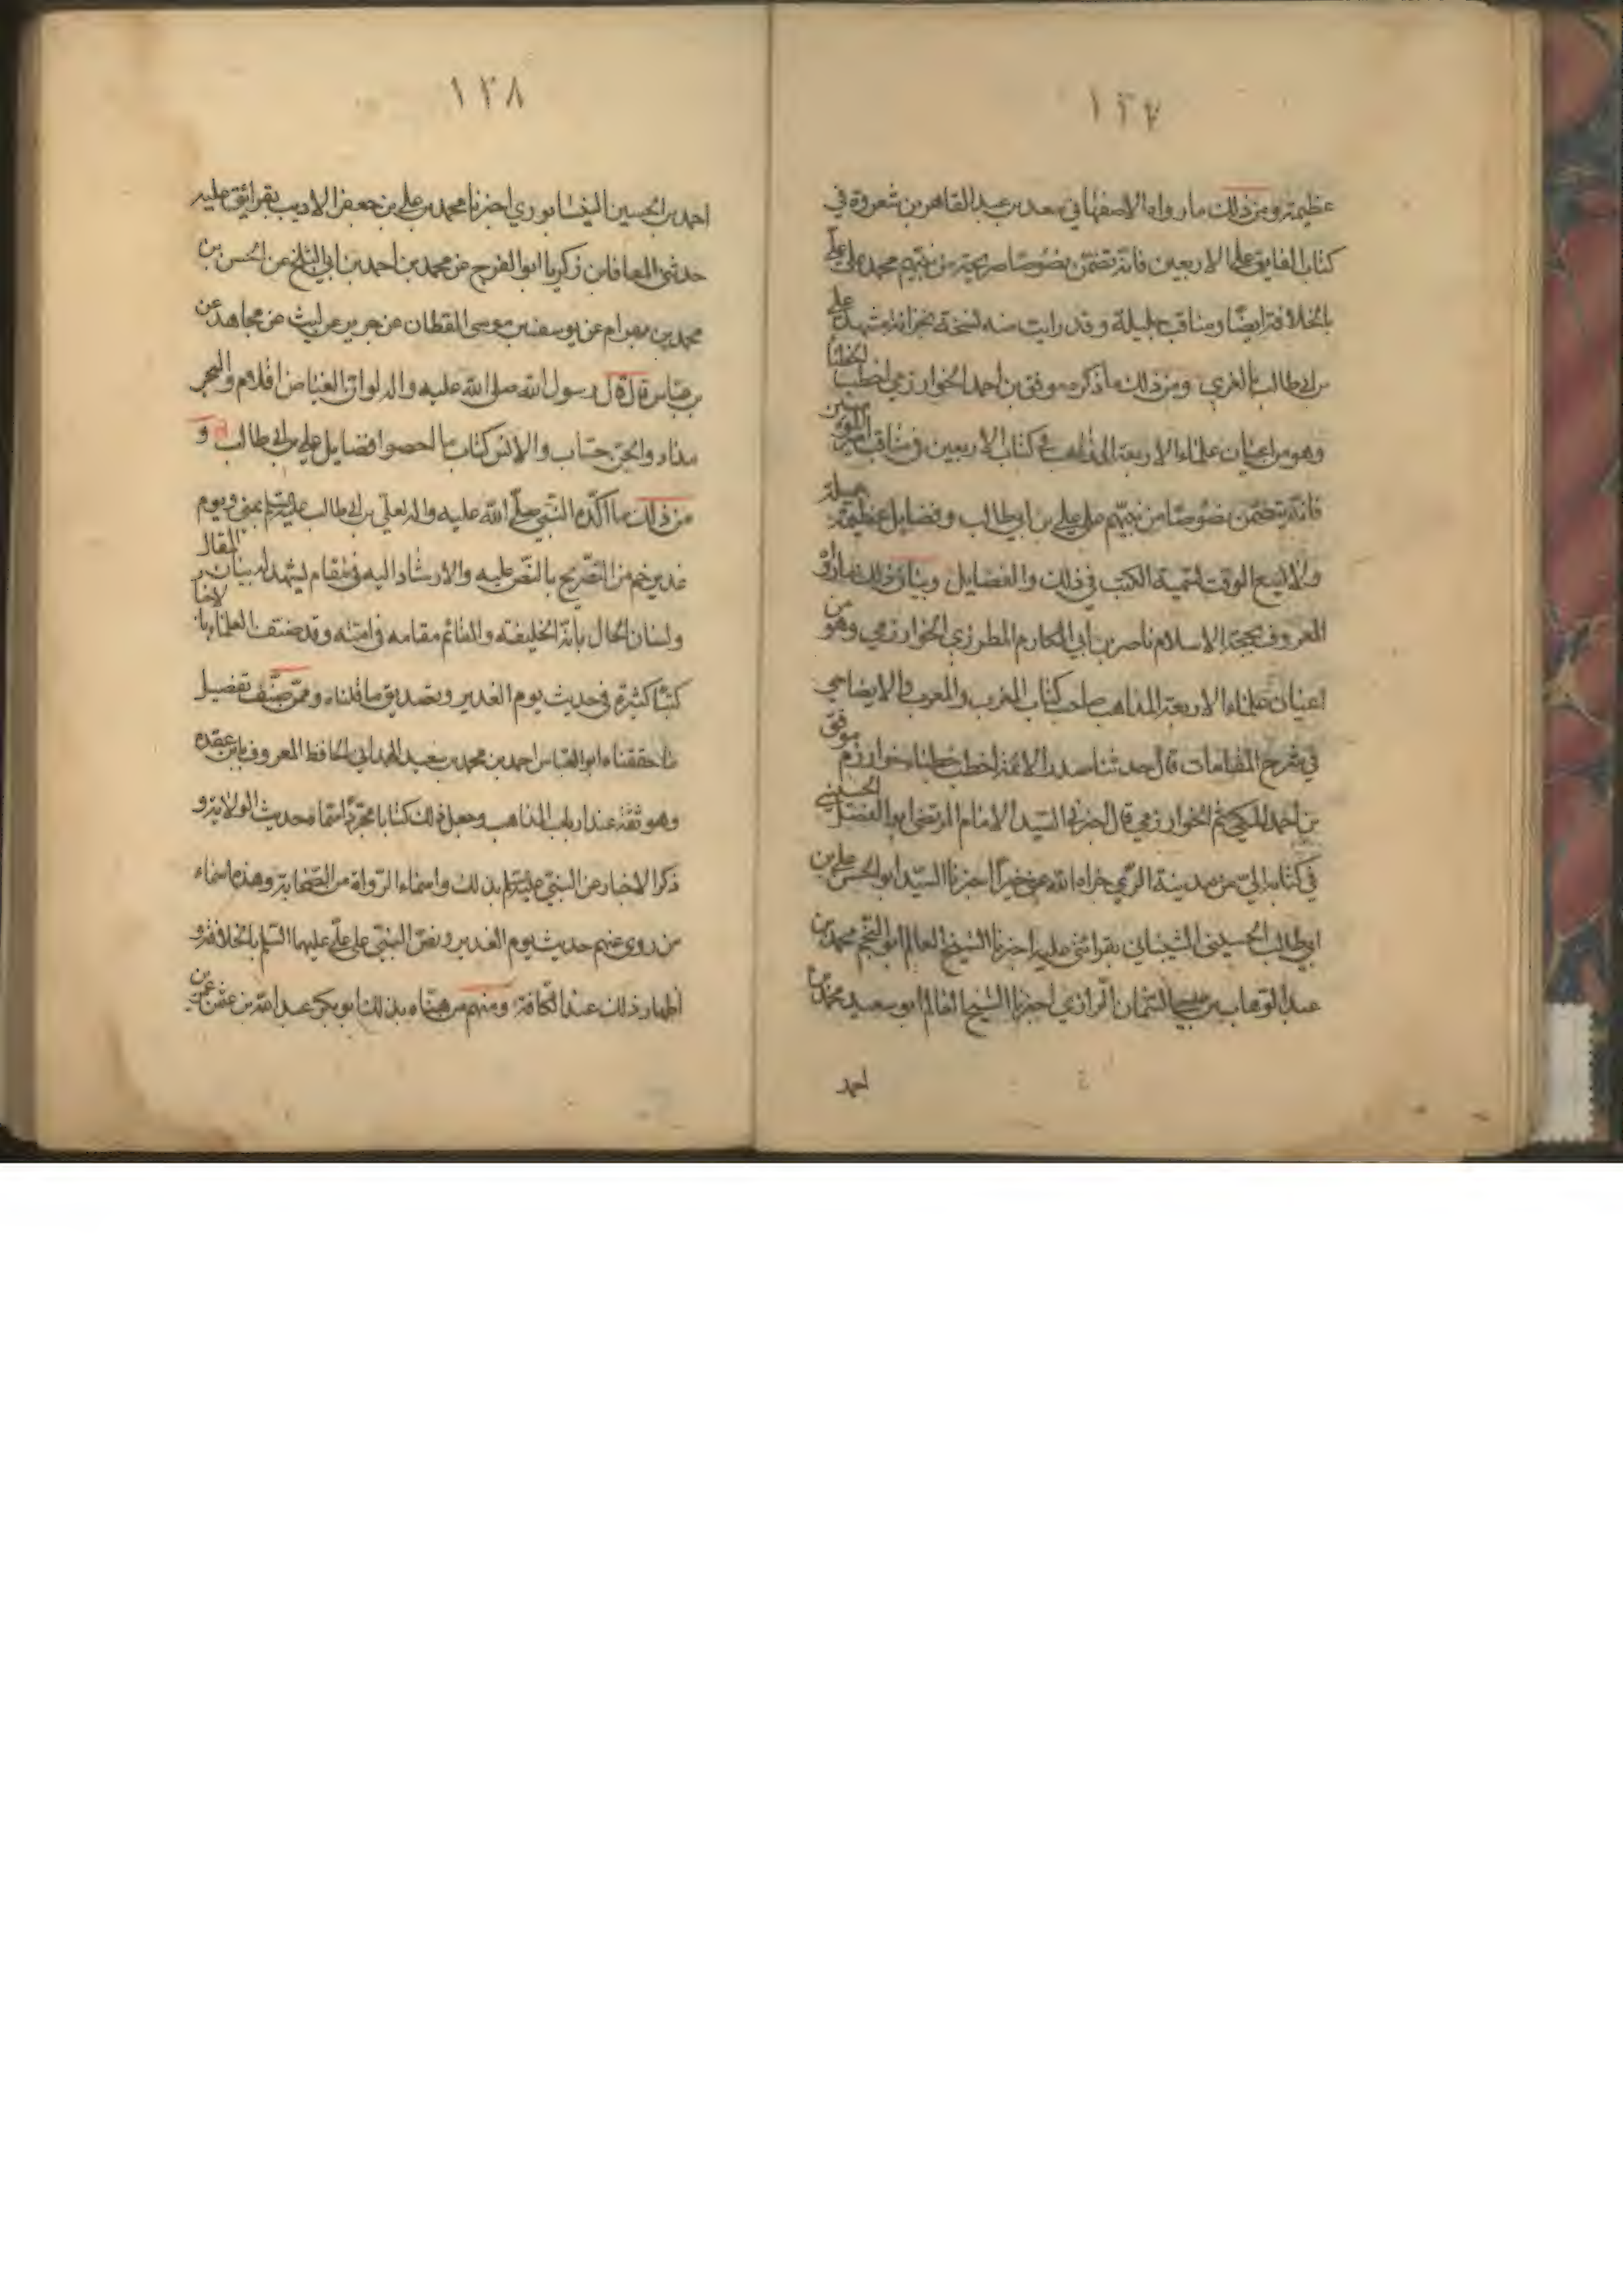 ١٣٧
عظيمة ومن ذلك ما رواه الاصفهاني سعد بن عبد القاهر بن شعروة في
كتاب الفايق على الاربعين فانه تضمن نصوصا صريحة من نبيهم محمد على علي
بالخلافة ايضا ومناقب جليلة وقد رايت منه نسخة بخزانة مشهد علي
بن ابي طالب بالغري ومن ذلك ما ذكره موفق بن احمد الخوارزمي اخطب الخطبا
وهو من اعيان علماء الاربعة المذاهب في كتاب الاربعين في مناقب امير المؤمنين
فانه يتضمن نصوصا من نبيهم على علي بن ابي طالب وفضايل عظيمة جميلة
ولا يسع الوقت لتسمية الكتب في ذلك والفضايل وبيان ذلك ما رواه
المعروف بحجة الاسلام ناصر بن ابي المكارم المطرزي الخوارزمي وهو من
اعيان علماء الاربعة المذاهب صاحب كتاب المغرب والمعرب والايضاحي
في شرح المقامات قال حدثنا صدر الائمة اخطب خطباء خوارزم موفق
بن احمد المكي ثم الخوارزمي قال اخبرني السيد الامام المرتضى ابو الفضل الحسيني
في كتابه الي من مدينة الري جزاه الله عني خيرا اخبرنا السيد ابو الحسن علي بن
ابي طالب الحسيني الشيباني بقرائتي عليه اخبرنا الشيخ العالم ابو النجم محمد بن
عبد الوهاب بن عيسى السمان الرازي اخبرنا الشيخ العالم ابو سعيد محمد بن
احمد
١٣٨
احمد بن الحسين النيسابوري اخبرنا محمد بن علي بن جعفر الاديب بقرائتي عليه
حدثني المعافا بن زكريا ابو الفرج عن محمد بن احمد بن ابي الثلج عن الحسن بن
محمد بن بهرام عن يوسف بن موسى القطان عن جرير عن ليث عن مجاهد عن
بن عباس قال قال رسول الله صلى الله عليه واله لو ان الغياض اقلام والبحر
مداد والجن حساب والانس كتاب ما احصوا فضايل علي بن ابي طالب و
من ذلك ما اكده النبي صلى الله عليه واله لعلي بن ابي طالب عليه السلام بمنى ويوم
غدير خم من التصريح بالنص عليه والارشاد اليه في مقام يشهد له بيان المقال
ولسان الحال بانه الخليفة والقائم مقامه في امته وقد صنف العلماء بالاخبار
كتبا كثيرة في حديث يوم الغدير وتصديق ما قلناه وممن صنف تفصيل
ما حققناه ابو العباس احمد بن محمد بن سعيد الهمداني الحافظ المعروف بابن عقده
وهو ثقة عند ارباب المذاهب وجعل ذلك كتابا مجردا سماه حديث الولاية و
ذكر الاخبار عن النبي عليه السلام بذلك واسماء الرواة من الصحابة وهذه اسماء
من روى عنهم حديث يوم الغدير ونص النبي على علي عليهما السلام بالخلافة و
اظهار ذلك عند الكافة ومنهم من هناه بذلك ابو بكر عبد الله بن عثمن عمر بن